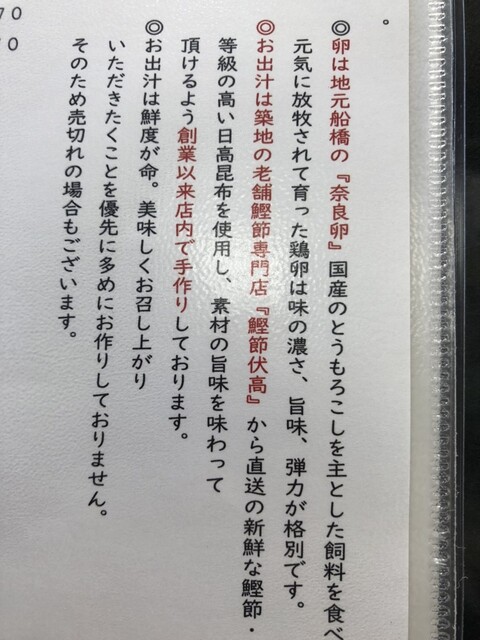 ◎卵は地元船橋の『奈良卵』国産のとうもろこしを主とした飼料を食べ
元気に放牧されて育った鶏卵は味の濃さ、旨味、弾力が格別です。
◎お出汁は築地の老舗鰹節専門店『鰹節伏高』から直送の新鮮な鰹節・
等級の高い日高昆布を使用し、素材の旨味を味わって
頂けるよう創業以来店内で手作りしております。
◎お出汁は鮮度が命。美味しくお召し上がり
いただきたくことを優先に多めにお作りしておりません。
そのため売切れの場合もございます。
70
0